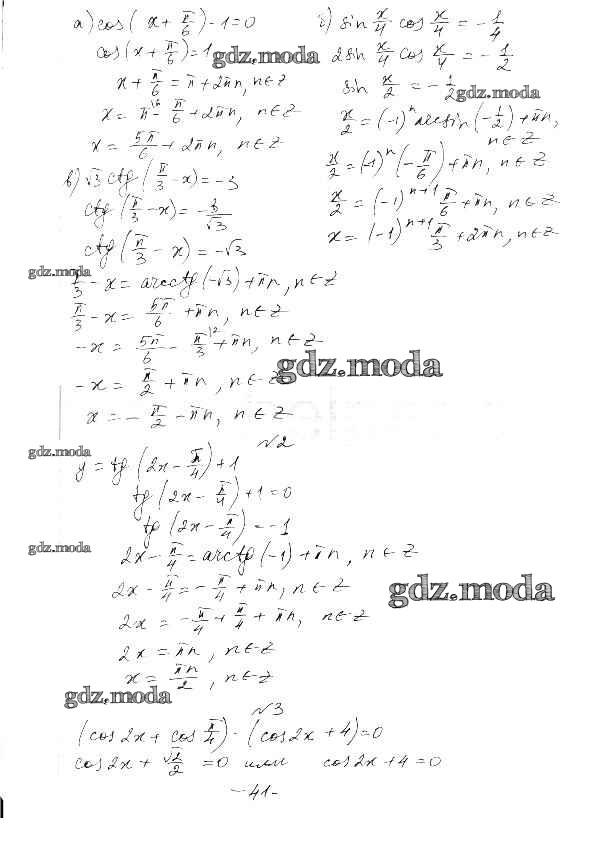 а) cos(x + π/6) - 1 = 0
cos(x + π/6) = 1
gdz.moda
x + π/6 = π + 2πn, n∈Z
x = π - π/6 + 2πn, n∈Z
x = 5π/6 + 2πn, n∈Z
б) sin x/4 cos x/4 = -1/4
2sin x/4 cos x/4 = -1/2
sin x/2 = -1/2
gdz.moda
x/2 = (-1)^n arcsin(-1/2) + πn,
n∈Z
x/2 = (-1)^n (-π/6) + πn, n∈Z
x/2 = (-1)^(n+1) π/6 + πn, n∈Z
x = (-1)^(n+1) π/3 + 2πn, n∈Z
в) √3 ctg(π/3 - x) = -3
ctg(π/3 - x) = -3/√3
ctg(π/3 - x) = -√3
gdz.moda
π/3 - x = arcctg(-√3) + πn, n∈Z
π/3 - x = 5π/6 + πn, n∈Z
-x = 5π/6 - π/3 + πn, n∈Z
gdz.moda
-x = π/2 + πn, n∈Z
x = -π/2 - πn, n∈Z
№2
gdz.moda
y = tg(2x - π/4) + 1
tg(2x - π/4) + 1 = 0
tg(2x - π/4) = -1
gdz.moda
2x - π/4 = arctg(-1) + πn, n∈Z
2x - π/4 = -π/4 + πn, n∈Z
gdz.moda
2x = -π/4 + π/4 + πn, n∈Z
2x = πn, n∈Z
x = πn/2, n∈Z
gdz.moda
№3
(cos2x + cos π/4) · (cos2x + 4) = 0
cos2x + √2/2 = 0 или cos2x + 4 = 0
-41-